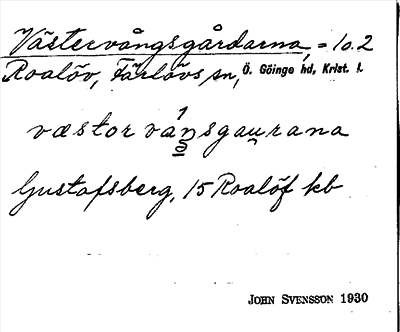 Västervångsgårdarna, = 10.2
Roalöv, Färlövs sn, Ö. Göinge hd, Krist. l.
væstor vánsgaurana
Gustafsberg, 15 Roalöf kb
JOHN SVENSSON 1930